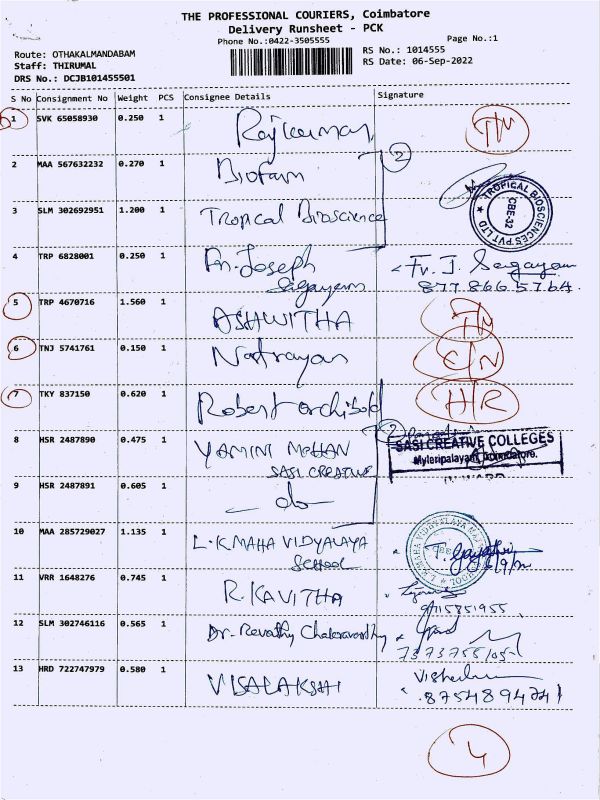 THE PROFESSIONAL COURIERS, Coimbatore
Delivery Runsheet - PCK
Phone No.:0422-3505555
Page No.:1
Route: OTHAKALMANDABAM
RS No.: 1014555
Staff: THIRUMAL
RS Date: 06-Sep-2022
DRS No.: DCJB101455501
S No Consignment No Weight PCS Consignee Details Signature
1 SVK 65058930 0.250 1 Rajkumar
2 MAA 567632232 0.270 1 Biofarm 2
3 SLM 302692951 1.200 1 Tropical Bioscience
TROPICAL BIOSCIENCES PVT LTD
CBE-32
4 TRP 6828001 0.250 1 Fr. Joseph Fr. J. Sagayam
Sagayam
5 TRP 4670716 1.560 1 ASHWITHA
6 TNJ 5741761 0.150 1 Natrayan
7 TKY 837150 0.620 1 Robert archibold HR
8 HSR 2487890 0.475 1 YAMINI MOHAN 2
SASI CREATIVE
SASI CREATIVE COLLEGES
Myleripalayam, Coimbatore.
9 HSR 2487891 0.605 1 do
10 MAA 285729027 1.135 1 L.K MAHA VIDYALAYA
School
11 VRR 1648276 0.745 1 R. KAVITHA
12 SLM 302746116 0.565 1 Dr. Revathy Chakravorthy
13 HRD 722747979 0.580 1 VISALAKSHI
4